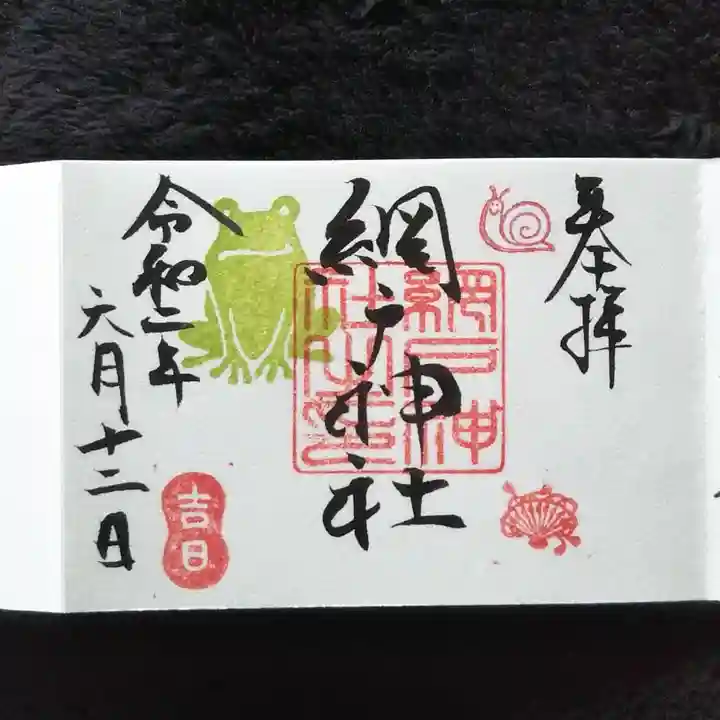 奉拝
網戸神社
網戸神社之印
令和二年
六月十二日
吉日